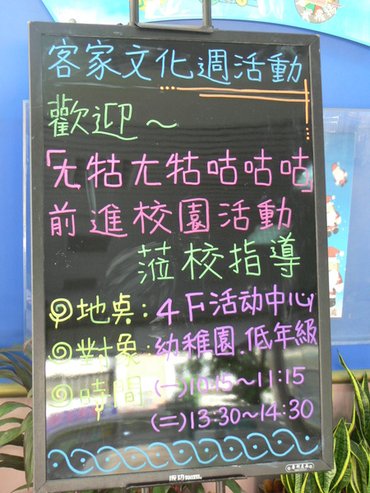 客家文化週活動
歡迎～
「ㄤ牯ㄤ牯咕咕咕」
前進校園活動
蒞校指導
地桌：4F活动中心
對象：幼稚園.低年級
時間：(一)10:15～11:15
(二)13:30～14:30
成功